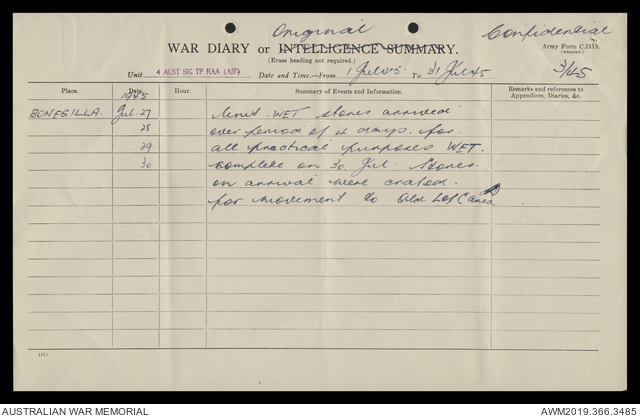 Original
Confidential
WAR DIARY or INTELLIGENCE SUMMARY.
(Erase heading not required.)
Army Form C.2118.
(Adapted.)
Unit 4 AUST SIG TP RAA (AIF) Date and Time.—From 1 Jul 45. To 31 Jul 45
3/45
Place. Date. Hour. Summary of Events and Information. Remarks and references to
Appendices, Diaries, &c.
1945
BONEGILLA. Jul. 27 Unit WET stores arrived
28 over period of 4 days. for
29 all practical purposes WET.
30 complete on 30 Jul. Stores
on arrival were crated.
for movement to Qld L of C area
AUSTRALIAN WAR MEMORIAL
AWM2019.366.3485